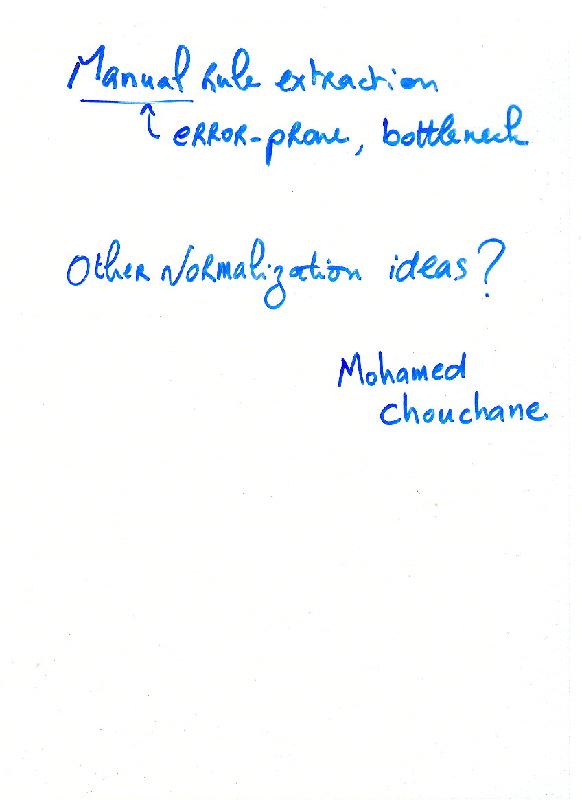 Manual rule extraction
error-prone, bottleneck
Other Normalization ideas?
Mohamed
Chouchane